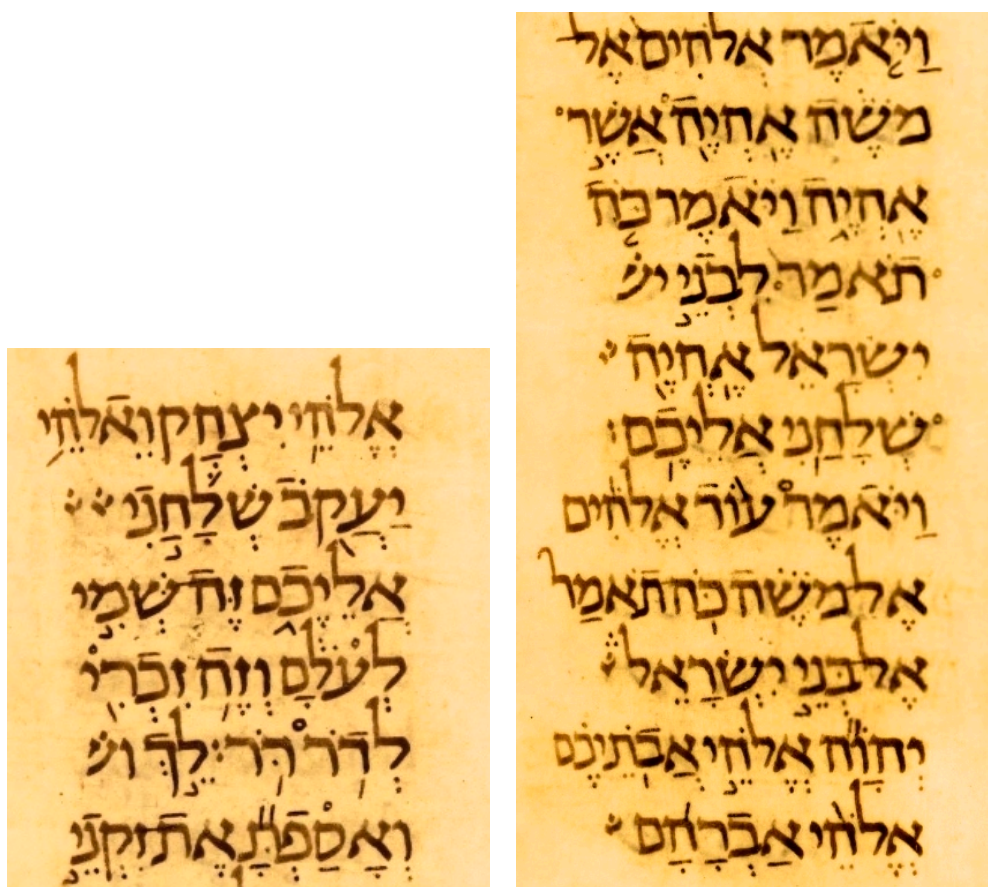 וַיֹּאמֶר אֱלֹהִים אֶל
מֹשֶׁה אֶהְיֶה אֲשֶׁר
אֶהְיֶה וַיֹּאמֶר כֹּה
תֹאמַר לִבְנֵי יש
יִשְׂרָאֵל אֶהְיֶה
שְׁלָחַנִי אֲלֵיכֶם׃
וַיֹּאמֶר עוֹד אֱלֹהִים
אֶל מֹשֶׁה כֹּה תֹאמַר
אֶל בְּנֵי יִשְׂרָאֵל
יְהוָה אֱלֹהֵי אֲבֹתֵיכֶם
אֱלֹהֵי אַבְרָהָם
אֱלֹהֵי יִצְחָק וֵאלֹהֵי
יַעֲקֹב שְׁלָחַנִי
אֲלֵיכֶם זֶה שְּׁמִי
לְעֹלָם וְזֶה זִכְרִי
לְדֹר דֹּר׃ לֵךְ וש
וְאָסַפְתָּ אֶת זִקְנֵי